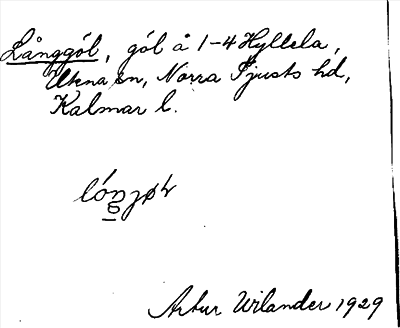 Långgöl, göl å 1-4 Hyllela,
Ukna sn, Norra Tjusts hd,
Kalmar l.
Artur Wilander 1929